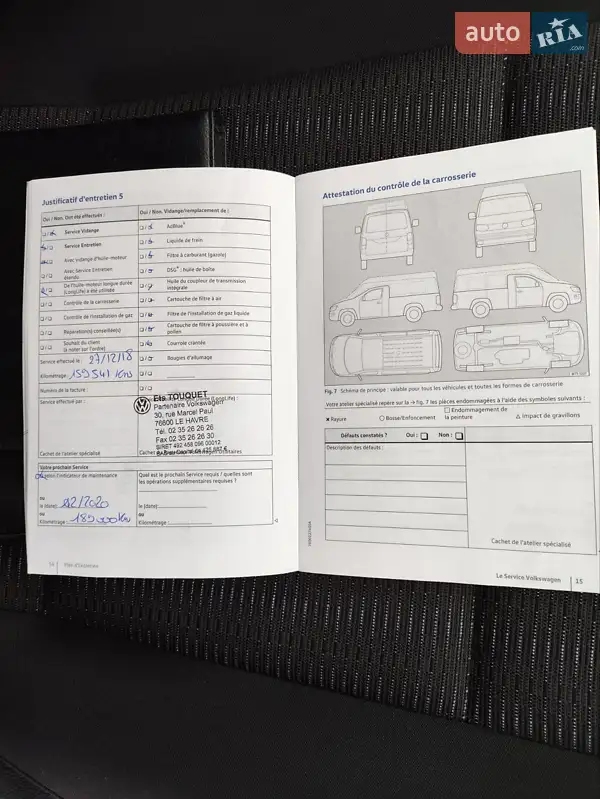 auto RIA .com
Justificatif d'entretien 5
Oui / Non. Ont été effectués :
Service Vidange
Service Entretien
Avec vidange d'huile-moteur
Avec Service Entretien étendu
De l'huile-moteur longue durée (LongLife) a été utilisée
Contrôle de la carrosserie
Contrôle de l'installation de gaz
Réparation(s) conseillée(s)
Souhait du client (à noter sur l'ordre)
Service effectué le : 27/12/18
Kilométrage : 159 541 Kms
Numéro de la facture :
Service effectué par :
Cachet de l'atelier spécialisé
Oui / Non. Vidange/remplacement de :
AdBlue
Liquide de frein
Filtre à carburant (gazole)
DSG : huile de boîte
Huile du coupleur de transmission intégrale
Cartouche de filtre à air
Filtre de l'installation de gaz liquide
Cartouche de filtre à poussière et à pollen
Courroie crantée
Bougies d'allumage
Ets TOUQUET
Partenaire Volkswagen
30, rue Marcel Paul
76600 LE HAVRE
Tél. 02 35 26 26 26
Fax 02 35 26 26 30
SIRET 492 458 096 00012
Votre prochain Service
selon l'indicateur de maintenance
ou
le (date) : 12/2020
ou
Kilométrage : 189 000 Km
Quel est le prochain Service requis / quelles sont les opérations supplémentaires requises ?
le (date) :
ou
Kilométrage :
14 Plan d'Entretien
Attestation du contrôle de la carrosserie
Fig. 7 Schéma de principe : valable pour tous les véhicules et toutes les formes de carrosserie
Votre atelier spécialisé repère sur la → fig. 7 les pièces endommagées à l'aide des symboles suivants :
× Rayure
○ Bosse/Enfoncement
□ Endommagement de la peinture
△ Impact de gravillons
Défauts constatés ? Oui : □ Non : □
Description des défauts :
Cachet de l'atelier spécialisé
Le Service Volkswagen 15